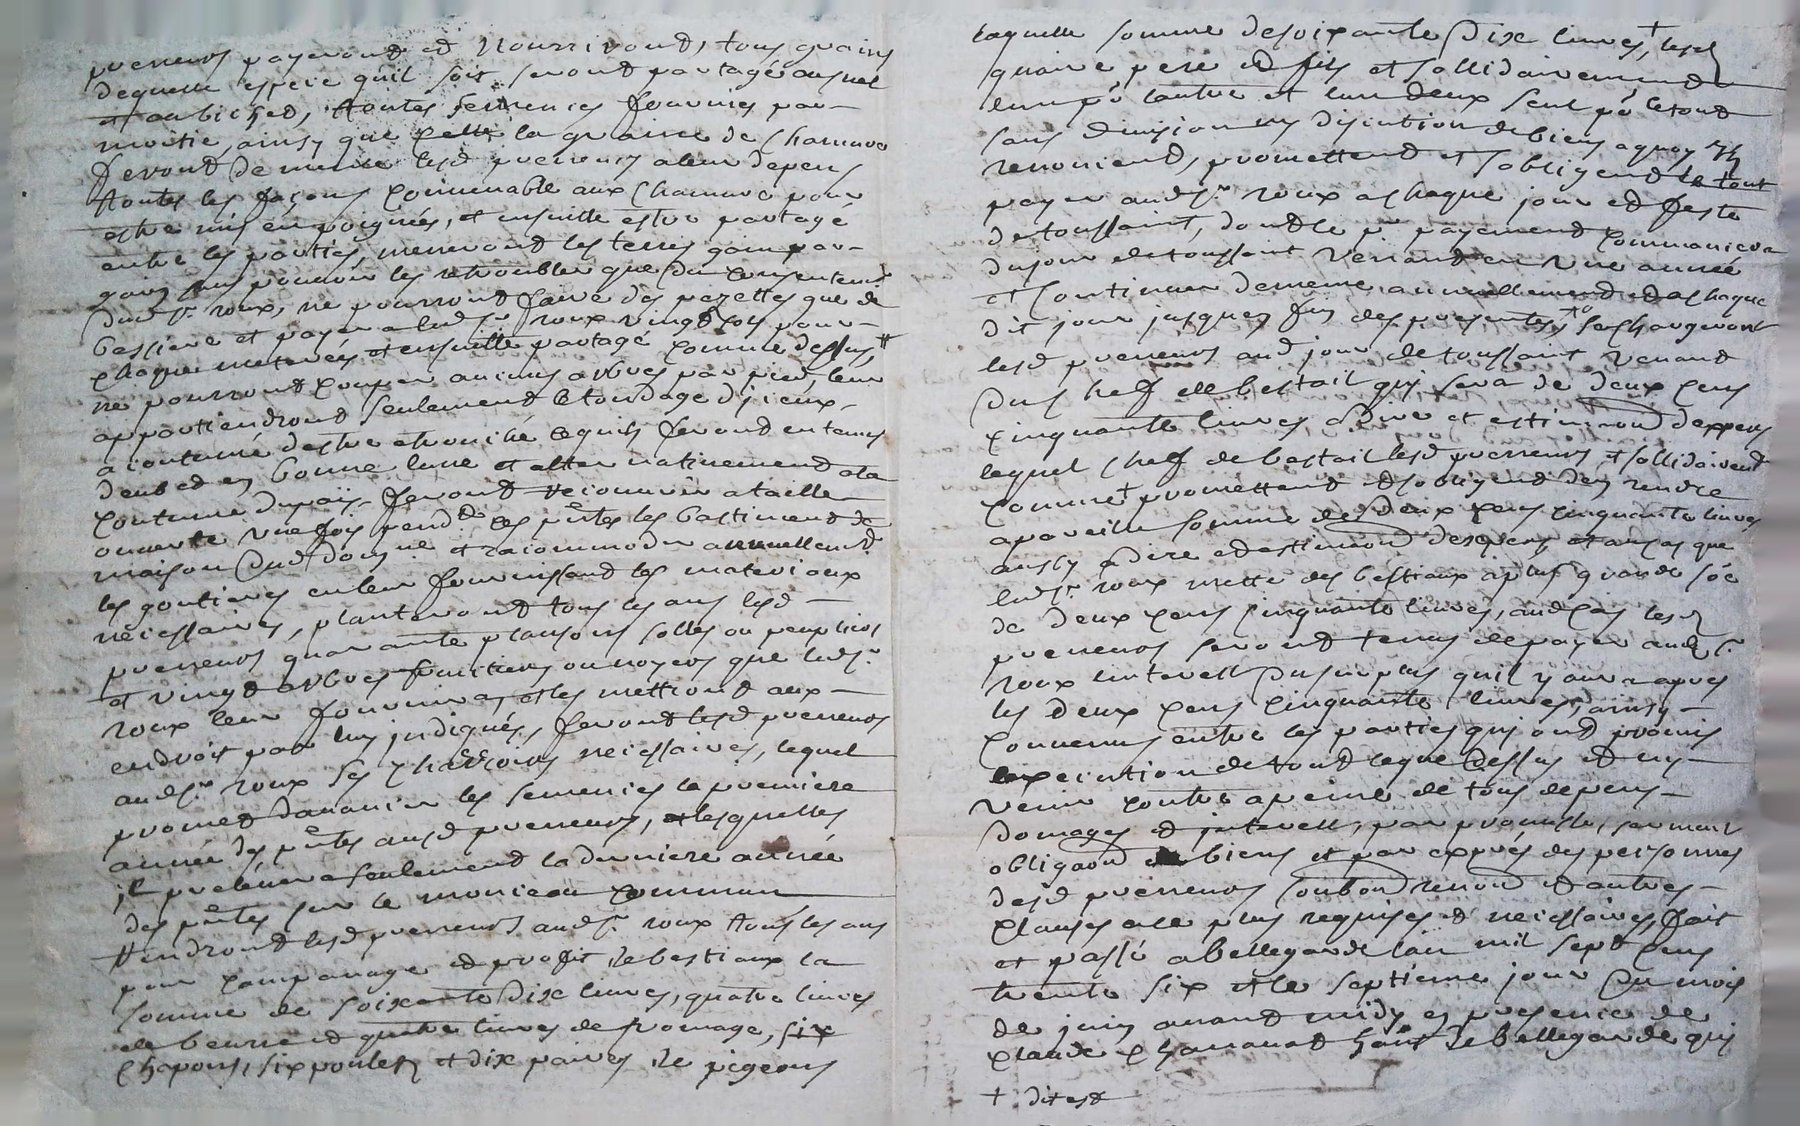 payeront et nourriront, tous grains
dequelle espece quil soit seront partagé
et au bichet, toutes semences fournies par
moitié, ainsy que celle la graine de chanvre
feront de mesme lesd a leur depens
toutes les façons convenable aux chanvre pour
estre mis en poignées, et ensuitte estre partagé
entre les parties, meneront les terres
sans pouvoir les retroubler que du consentement
dud sr. roux, ne pourront faire des que de
et payer aud sr roux vingt sols pour
chaque et ensuitte partage comme dessus, #
ne pourront couper aucuns arbres par pied, leur
appartiendront seulement le tondage djceux
acoutumé destre ebranché lequels feront en temps
deub et en bonne lune et alternativement a la
coutume du pais, feront recouvrir a taille
ouverte une fois pendt ces pntes les bastiments de
maison dud domayne et racommoder annuellement
les goutieres en leur fournissant les materiaux
necessaires, planteront tous les ans lesd
quarante plansons solles ou peupliers
et vingt arbres fruitiers ou noyers que led sr
roux leur fournira, et les mettront aux
endroit par luy jndiqués, feront lesd
aud sr. roux ses charrois necessaires, lequel
promet davancer les semences la premiere
année des pntes ausd et lesquelles
jl prelevera seulement la derniere année
des pntes sur le monceau commun
tiendront lesd aud sr. roux tous les ans
pour et profit de bestiaux la
somme de soixante dix livres, quatre livres
de beurre et quatre livres de fromage, six
chapons, six poulets et dix paires de pigeons
laquelle somme de soixante dix livres, + lesd
pere et fils et sollidairement
lun pr lautre et lun deux seul pr le tout
sans division ny discution de biens a quoy jls
renoncent, promettent et sobligent le tout
payer aud sr. roux a chaque jour et feste
de toussaint, dont le pr payement commancera
du jour de toussaint venant en une année
et continuer de meme annuellement et a chaque
dit jour jusques fin des presentes, se chargeront
lesd aud jour de toussaint venant
dun chef de bestail qui sera de deux cens
cinquante livres a dire et estimaon dexpers
lequel chef de bestail lesd sollidairemt
comme + promettent et sobligent den rendre
a pareille somme de deux cens cinquante livres
aussy a dire et estimaon dexpers et au cas que
led sr. roux mette des bestiaux a plus grande soe
de deux cens cinquante livres, aud cas lesd
seront tenus de payer aud sr.
roux linterest du surplus quil y aura apres
les deux cens cinquante livres, ainsy
convenus entre les parties qui ont promis
lexecution de tout ce que dessus et ny
venir contre a peine de tous depens
domages et jnterest, par promesse, serment
obligaon de biens et par exprés des personnes
desd soubon renon et autres
clauses a ce plus requises et necessaires, fait
et passé a bellegarde lan mil sept cens
trente six et le septieme jour du mois
de juin avant midy en presence de
claude hant de bellegarde qui
+ dit est